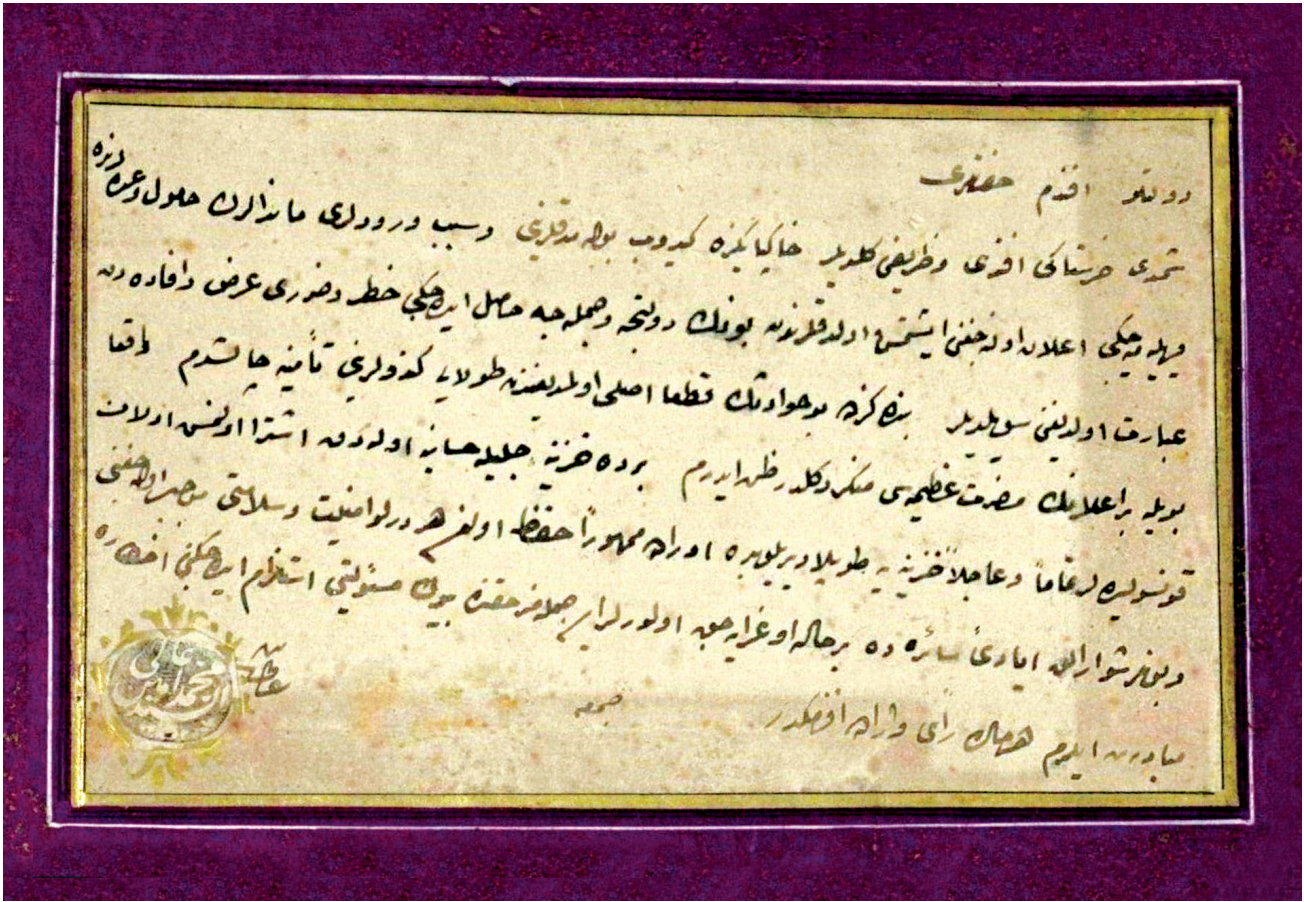 دولتلو افندم حضرتلری
شمدی خرستاکی افندی و ظریفی كلدیلر خاكپایكزه كیدوب بوله مدقلرینی و سبب ورودلری ماندالرك حلول وعده لرنده
ویریله میه جكی اعلان اوله جغنی ایشتمش اولدقلرندن بونك دولتجه و جمله جه حاصل ایده جكی خطر و ضرری عرض و افاده دن
عبارت اولدیغنی سویلدیلر بنده كز ده بو حوادثك قطعا اصلی اولمدیغندن طولایی كندولرینی تأمینه چالشدم واقعا
بویله بر اعلانك مضرت عظیمه سی منكر دكلدر ظن ایدرم بر ده خزینه جلیله حسابنه اوله رق اشترا اولنمش اولان
قونسولیدلر تماماً و عاجلاً خزینه یه طوپلادیریلوب ده اوراده ممهوراً حفظ اولنمز هر درلو امنیت و سلامتی موجب اوله جغنی
و بونلر شو ارالق ایادئ سائره ده بر حاله اوغرایه جق اولور لر ایسه جمله مز حقنده بیوك مسئولیتی استلزام ایده جكنی اخطاره
مبادرت ایلرم هر حالده رأی و اراده افندمكدر
جمعه
محمد امین عالی